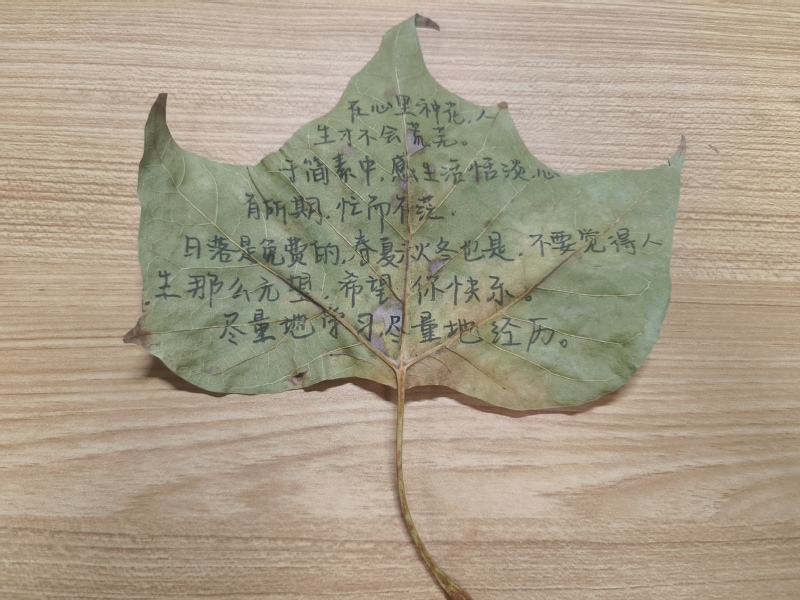 在心里种花，人
生才不会荒芜。
于简素中，感生活恬淡，心
有所期，忙而不茫．
日落是免费的，春夏秋冬也是．不要觉得人
生那么无望，希望你快乐。
尽量地学习尽量地经历。